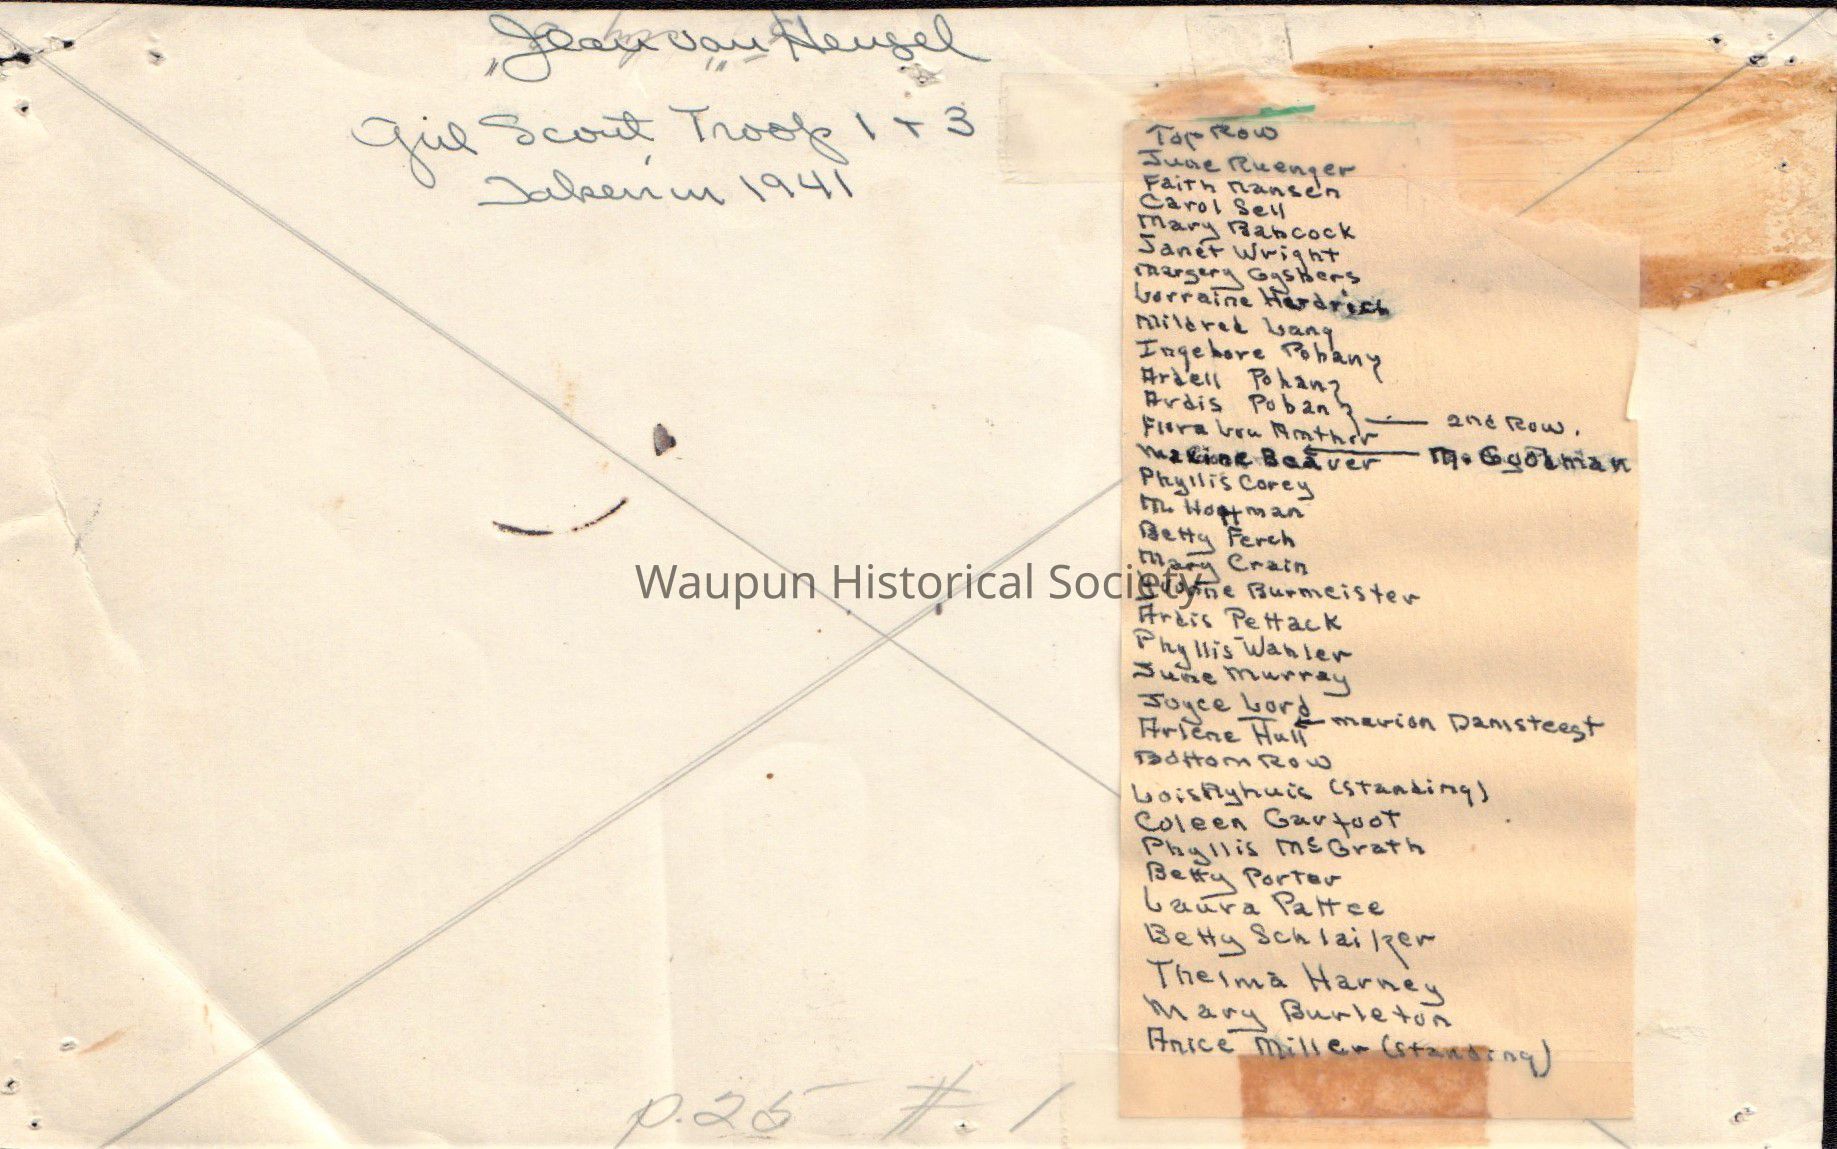 "Jean van Hengel"
Girl Scout Troop 1 + 3
Taken in 1941
Top Row
June Ruenger
Faith Hansen
Carol Sell
Mary Babcock
Janet Wright
Margery Gysbers
Lorraine Herdrich
Mildred Lang
Ingebore Pohany
Ardell Pohany
Ardis Pohany
2nd Row.
Flora Lou Amthor
Maxine Beaver
M. Goodman
Phyllis Corey
M. Hoffman
Betty Ferch
Mary Crain
Yvonne Burmeister
Ardis Pettack
Phyllis Wahler
June Murray
Joyce Lord
Marion Damsteegt
Arlene Hull
Bottom Row
Lois Nyhuis (standing)
Coleen Garfoot
Phyllis McGrath
Betty Porter
Laura Pattee
Betty Schlaifer
Thelma Harney
Mary Burleton
Anice Miller (standing)
Waupun Historical Society
p. 25 #. 1